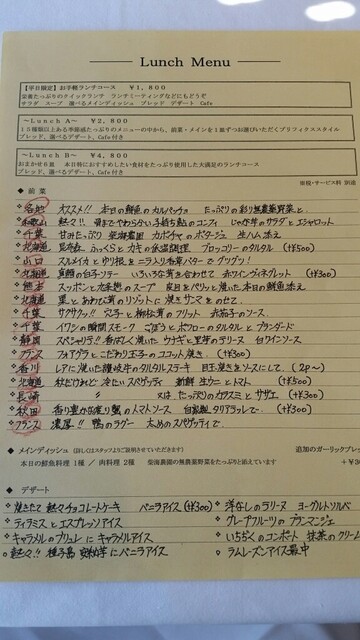 Lunch Menu
【平日限定】お手軽ランチコース ¥1,800
栄養たっぷりのクイックランチ ランチミーティングなどにもどうぞ
サラダ スープ 選べるメインディッシュ ブレッド デザート Cafe
～Lunch A～ ¥2,800
15種類以上ある季節感たっぷりのメニューの中から、前菜・メインを1皿ずつお選びいただくプリフィクススタイル
ブレッド、選べるデザート、Cafe付き
～Lunch B～ ¥4,800
おまかせ6皿 本日特におすすめしたい食材をたっぷり使用した大満足のランチコース
ブレッド、選べるデザート、Cafe付き
※税・サービス料 別途
◆ 前菜
各地 オススメ!! 本日の鮮魚のカルパッチョ たっぷりの彩り無農薬野菜と
和歌山 軽々!! 骨までやわらかい子持ち鮎のコンフィ じゃが芋のサラダとエシャロット
千葉 甘みたっぷり 柴海農園 カボチャのポタージュ 生ハム添え
北海道 昆布森 ふっくらとカキの低温調理 ブロッコリーのタルタル (+¥500)
山口 スルメイカとゆり根をニラとバターで グツグツ!
北海道 真鱈の白子ソテー いろいろな茸を合わせて 赤ワインヴィネグレット (+¥300)
熊本 スッポンと冬瓜のスープ 皮目をパリッと焼いた本日の鮮魚添え
北海道 栗とあわび茸のリゾットに焼きサンマをのせて
千葉 サクサクッ!! 穴子と柳松茸のフリット 赤茄子のソース
千葉 イワシの瞬間スモーク ごぼうとポワローのタルタルと ブランダード
静岡 スペシャリテ!! 香ばしく焼いたウナギと里芋のテリーヌ 白ワインソース
フランス フォアグラとこだわり玉子のココット焼き (+¥300)
香川 レアに焼いた讃岐牛のタルタルステーキ 目玉焼きをソースにして (2P～)
北海道 だけれど 冷たいスパゲッティ 新鮮生ウニとトマト (+¥500)
長崎 〃 又は たっぷりのカラスミとサザエ (+¥300)
秋田 香り豊かな渡り蟹のトマトソース 自家製タリアテッレで (+¥300)
フランス 濃厚!! 鴨のラグー 太めのスパゲッティで
◆ メインディッシュ (詳しくはスタッフよりご説明させていただきます) 追加のガーリックブレッ
本日の鮮魚料理 1種 / 肉料理 2種 柴海農園の無農薬野菜をたっぷりと添えています +¥30
◆ デザート
焼きたて 軽々チョコレートケーキ バニラアイス (+¥300) 洋なしのテリーヌ ヨーグルトソルベ
ティラミスとエスプレッソアイス グレープフルーツのブランマンジェ
キャラメルのブリュレに キャラメルアイス いちぢくのコンポート 抹茶のクリーム
軽々!! 種子島 安納芋にバニラアイス ラムレーズンアイス最中